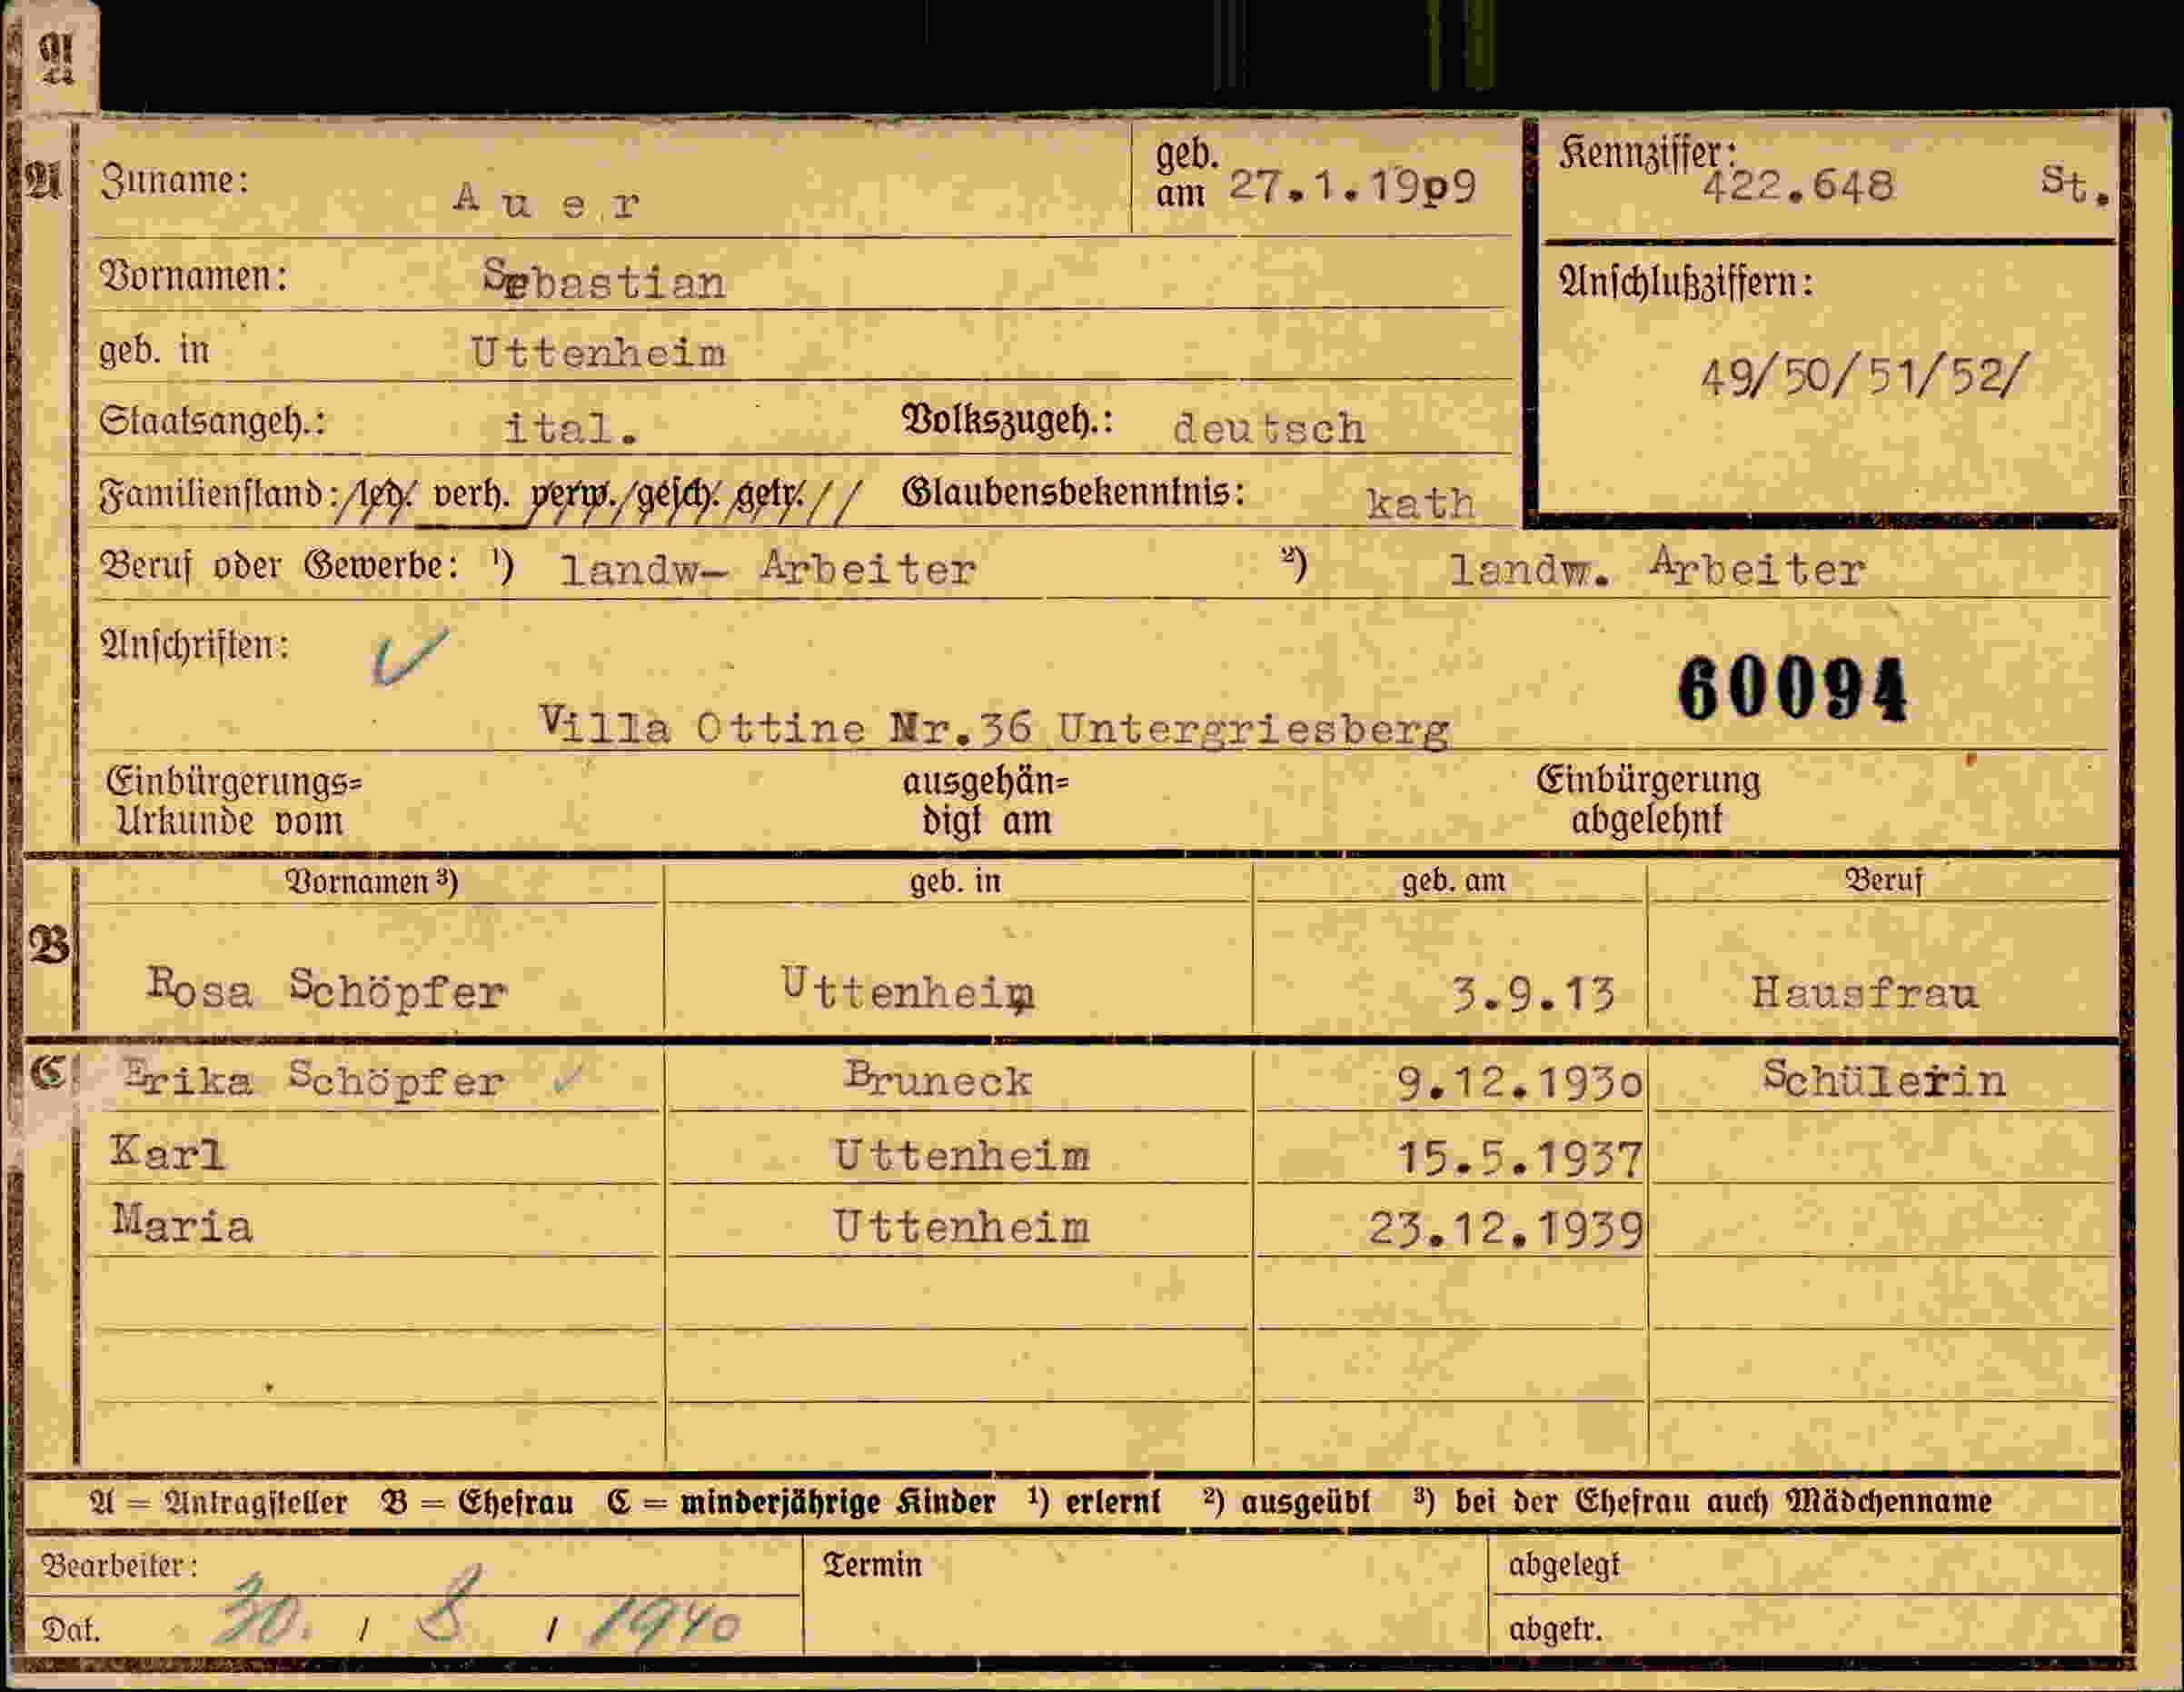 A
A Zuname: Auer geb. am 27.1.1909 Kennziffer: 422.648 St.
Vornamen: Sebastian Anschlußziffern:
geb. in Uttenheim 49/50/51/52/
Staatsangeh.: ital. Volkszugeh.: deutsch
Familienstand: led. verh. verw. gesch. getr. Glaubensbekenntnis: kath
Beruf oder Gewerbe: ¹) landw- Arbeiter ²) landw. Arbeiter
Anschriften: 60094
Villa Ottine Nr.36 Untergriesberg
Einbürgerungs= ausgehän= Einbürgerung
Urkunde vom digt am abgelehnt
Vornamen ³) geb. in geb. am Beruf
B
Rosa Schöpfer Uttenheim 3.9.13 Hausfrau
C Erika Schöpfer Bruneck 9.12.1930 Schülerin
Karl Uttenheim 15.5.1937
Maria Uttenheim 23.12.1939
A = Antragsteller B = Ehefrau C = minderjährige Kinder ¹) erlernt ²) ausgeübt ³) bei der Ehefrau auch Mädchenname
Bearbeiter: Termin abgelegt
Dat. 30. / 8 / 1940 abgetr.